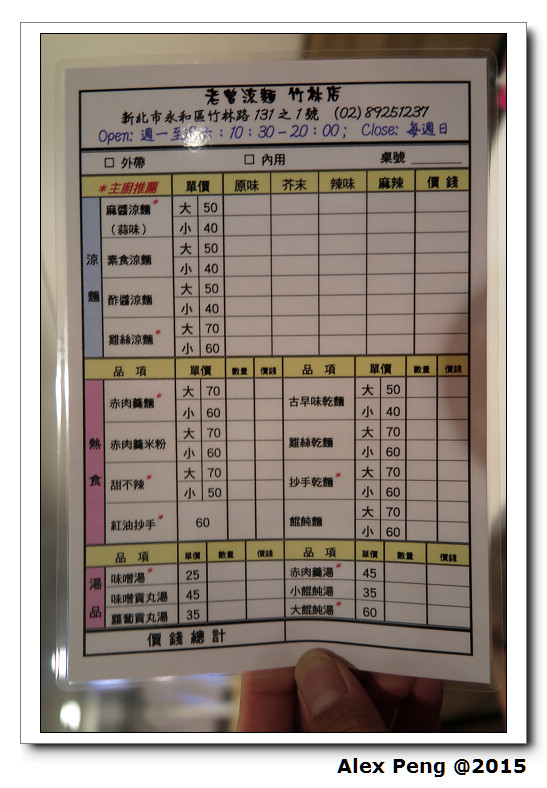 老曾涼麵 竹林店
新北市永和區竹林路131之1號 (02)89251237
Open: 週一至週六：10：30-20：00； Close: 每週日
□ 外帶 □ 內用 桌號
*主廚推薦 單價 原味 芥末 辣味 麻辣 價錢
涼麵
麻醬涼麵* 大 50
(蒜味) 小 40
素食涼麵 大 50
小 40
酢醬涼麵 大 50
小 40
雞絲涼麵* 大 70
小 60
品項 單價 數量 價錢 品項 單價 數量 價錢
熱食
赤肉羹麵* 大 70 古早味乾麵 大 50
小 60 小 40
赤肉羹米粉 大 70 雞絲乾麵 大 70
小 60 小 60
甜不辣* 大 70 抄手乾麵* 大 70
小 50 小 60
紅油抄手* 60 餛飩麵 大 70
小 60
品項 單價 數量 價錢 品項 單價 數量 價錢
湯品
味噌湯* 25 赤肉羹湯* 45
味噌貢丸湯 45 小餛飩湯 35
蘿蔔貢丸湯 35 大餛飩湯* 60
價錢總計
Alex Peng @2015